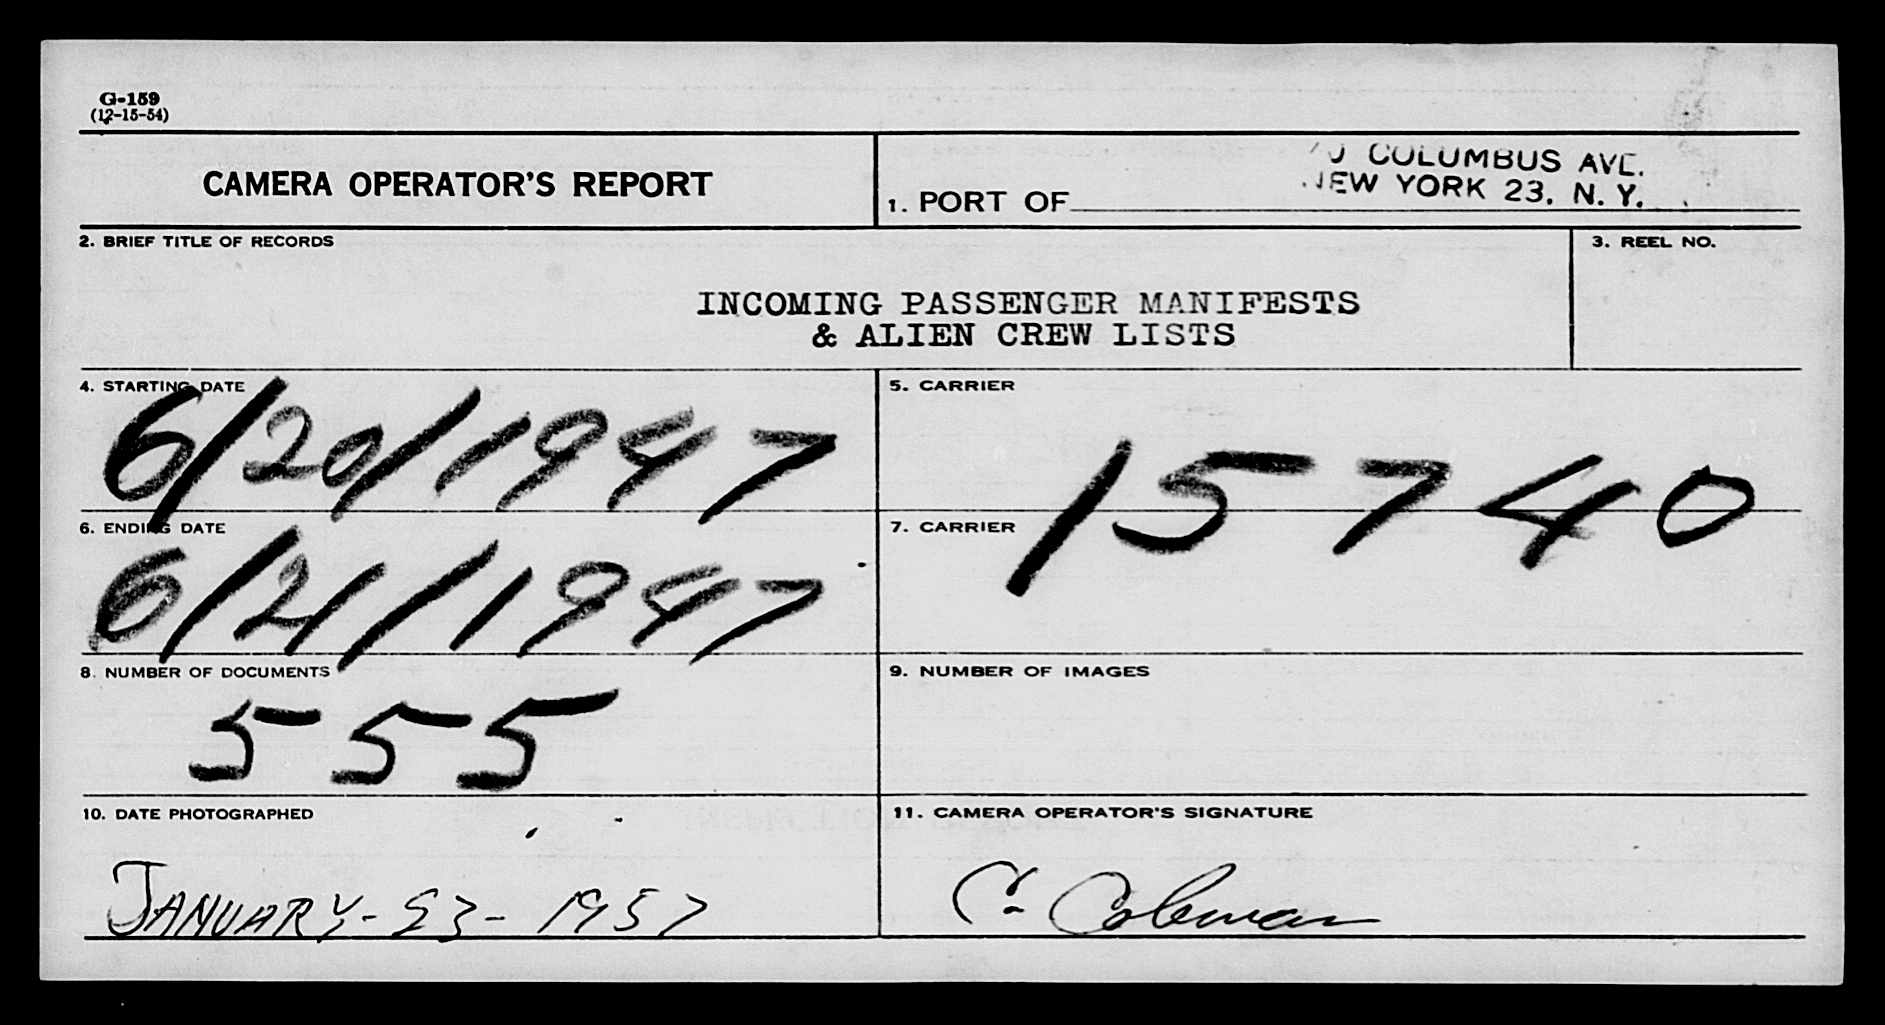 G-159
(12-15-54)
CAMERA OPERATOR'S REPORT
COLUMBUS AVE.
NEW YORK 23, N. Y.
1. PORT OF
2. BRIEF TITLE OF RECORDS
3. REEL NO.
INCOMING PASSENGER MANIFESTS
& ALIEN CREW LISTS
4. STARTING DATE
6/20/1947
5. CARRIER
15740
6. ENDING DATE
6/21/1947
7. CARRIER
8. NUMBER OF DOCUMENTS
555
9. NUMBER OF IMAGES
10. DATE PHOTOGRAPHED
JANUARY-23-1957
11. CAMERA OPERATOR'S SIGNATURE
C. Coleman